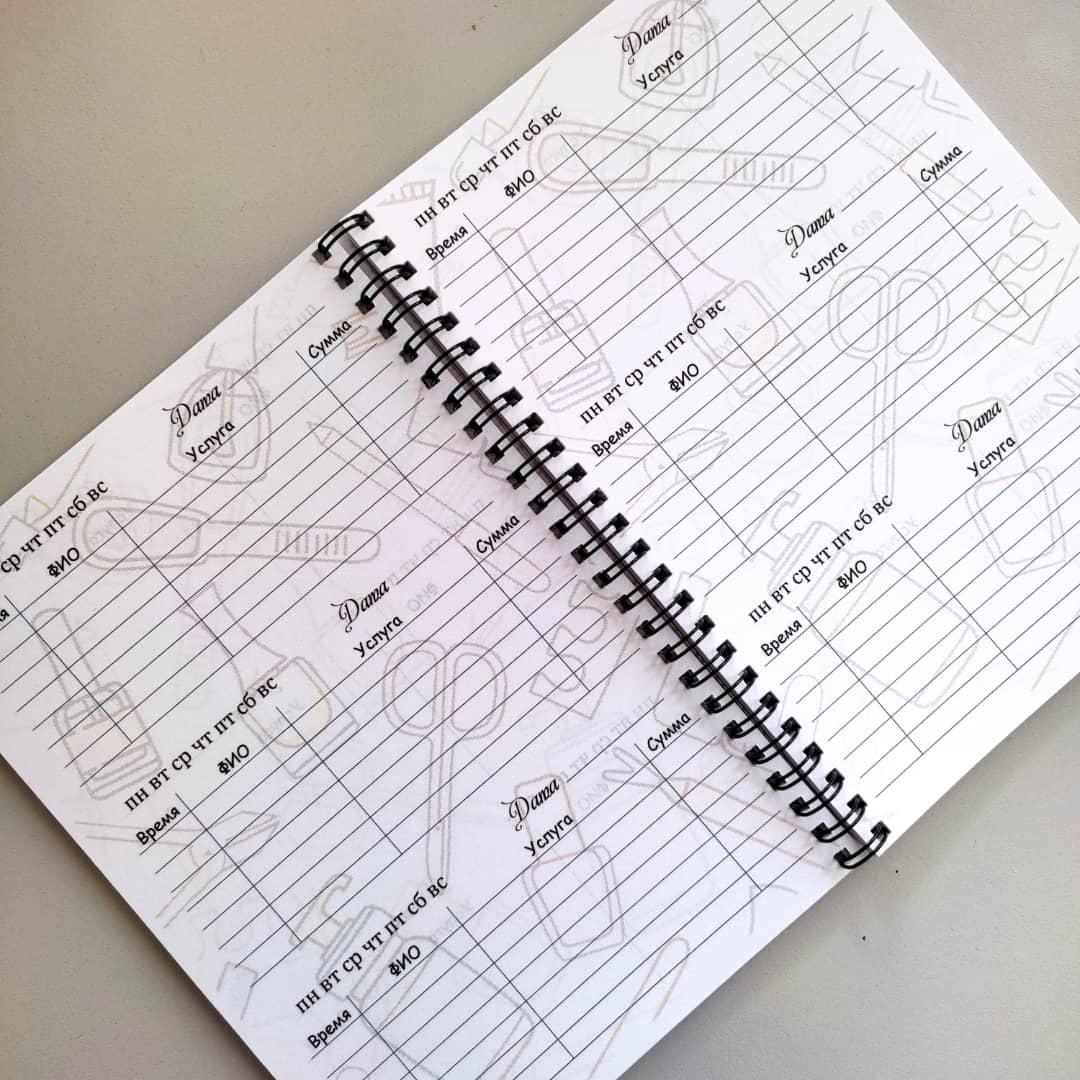 ср чт пт сб вс Дата
ФИО Услуга Сумма
пн вт ср чт пт сб вс Дата
Время ФИО Услуга Сумма
пн вт ср чт пт сб вс Дата
Время ФИО Услуга Сумма
пн вт ср чт пт сб вс Дата
Время ФИО Услуга Сумма
пн вт ср чт пт сб вс Дата
Время ФИО Услуга
пн вт ср чт пт сб вс Дата
Время ФИО Услуга